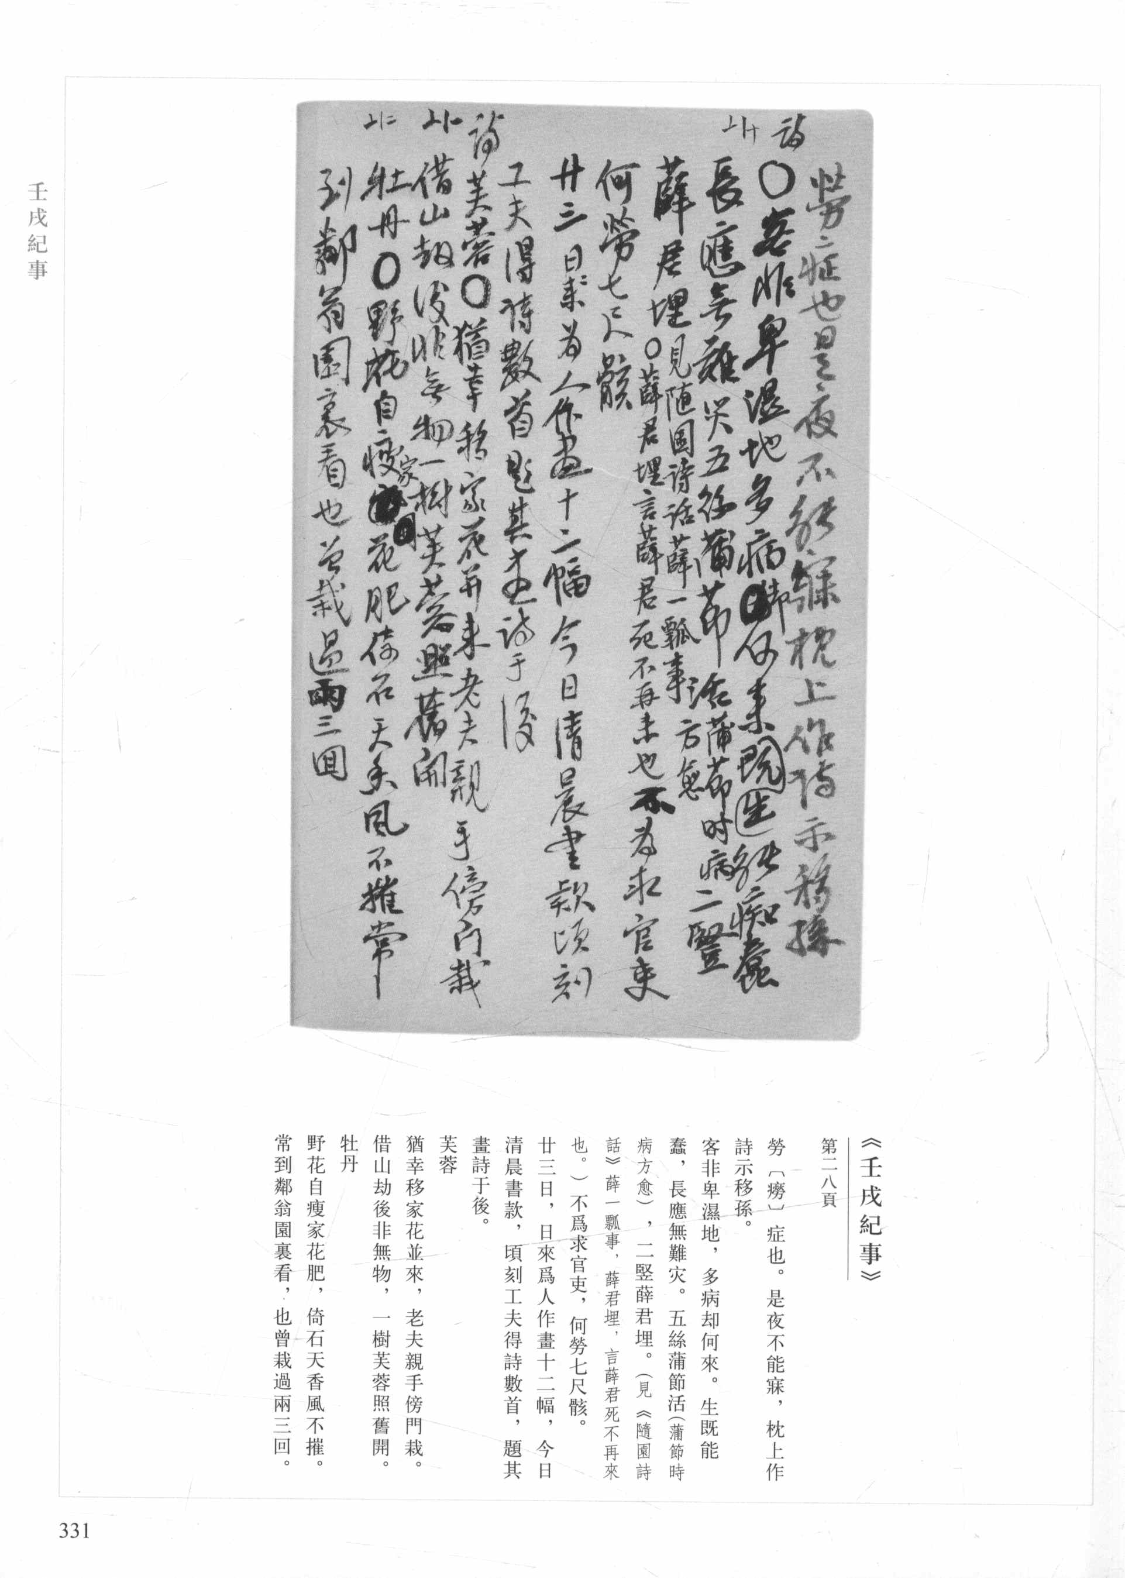 壬戌紀事
勞症也是夜不能寐枕上作詩示移孫
詩
〇客非卑濕地多病却何來既生能痴蠢
長應無難災五絲蒲節活蒲節时病方愈二豎
薛君埋見随園詩話薛一瓢事
〇薛君埋言薛君死不再来也不为求官吏
何勞七尺骸
廿三日日来为人作畫十二幅今日清晨書款頃刻
工夫得詩數首題其画詩于後
詩芙蓉〇猶幸移家花并来老夫親手傍门栽
借山劫後非無物一樹芙蓉照舊開
牡丹〇野花自瘦家花肥倚石天香风不摧常
到鄰翁園裏看也曾栽過兩三回
《壬戌紀事》
第二八頁
勞〔癆〕症也。是夜不能寐，枕上作
詩示移孫。
客非卑濕地，多病却何來。生既能
蠢，長應無難灾。五絲蒲節活（蒲節時
病方愈），二竪薛君埋。（見《隨園詩
話》薛一瓢事，薛君埋，言薛君死不再來
也。）不爲求官吏，何勞七尺骸。
廿三日，日來爲人作畫十二幅，今日
清晨書款，頃刻工夫得詩數首，題其
畫詩于後。
芙蓉
猶幸移家花並來，老夫親手傍門栽。
借山劫後非無物，一樹芙蓉照舊開。
牡丹
野花自瘦家花肥，倚石天香風不摧。
常到鄰翁園裏看，也曾栽過兩三回。
331